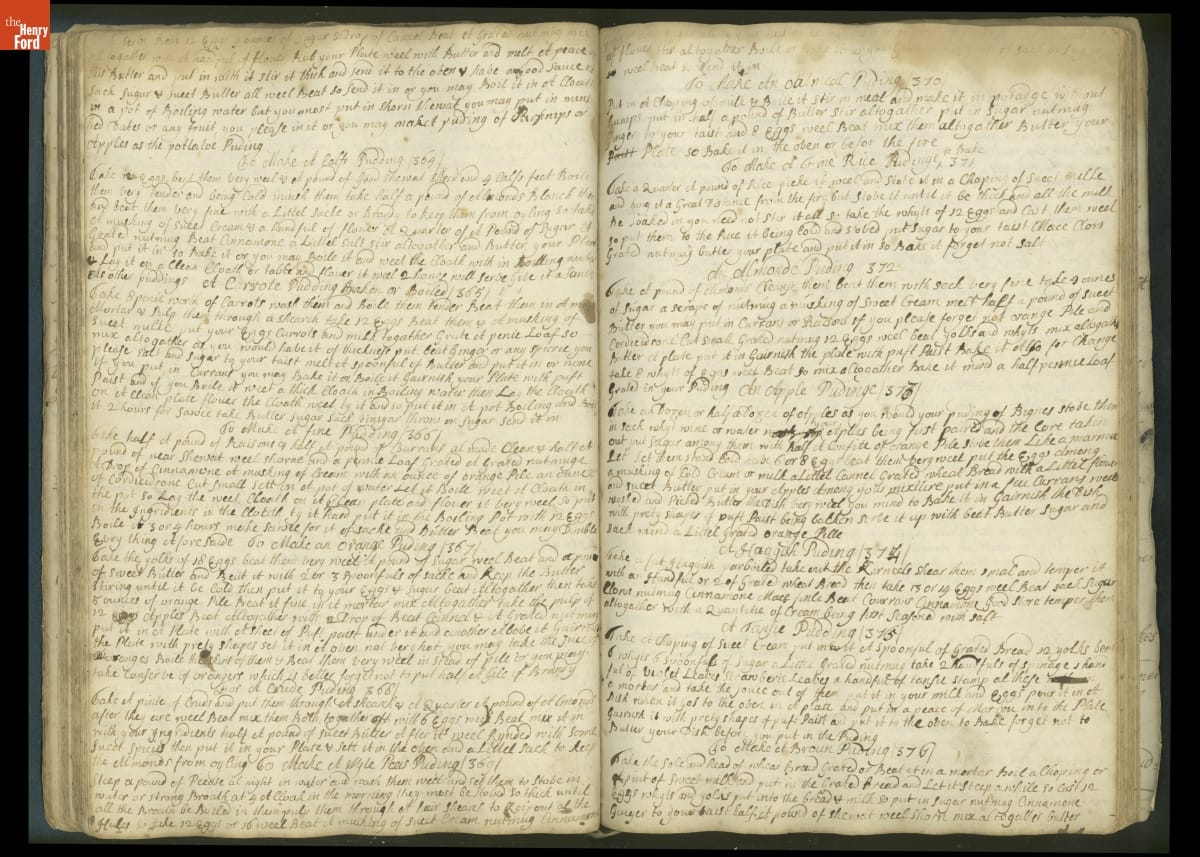 the
Henry
Ford
Beat 12 Eggs ounces of Sugar 2 Drop of Cannel Beat et Grated nutmug mix
altogather with et handful of flower Rub your Plate weel with Butter and melt et peace
Butter and put in with it stir it thick and send it to the oven & have a good sauce
Sack Sugar & sweet Butter all weel Beat so send it in or you may Boil it in et Cloath
in a pot of Boiling water but you most put in shorn shewat you may put in mins
ned Dates or any fruit you please in it or you may make et puding of or
Apples as the potlatoe Puding
To Make et Colfs Pudding /364/
Take 12 Eggs beat them very weel & et pound of Good Shewat shord and 4 Calfs feet Boild
them very tender and being Cold minsh them take half a pound of Almonds Blanch them
and Beat them very fine with a Littel Sacke or Brandy to keep them from oyling so take
et mutshking of Sweet Cream & a handful of flower et Quarter of et Pound of Sugar et
Grated nutmug Beat Cinnamone a Littel Salt stir altogather and Butter your Plate
and put it in so Bake it or you may Boile it and weet the Cloath with in Boilling water
& Lay it on a Clean Cloath or table and flower it weel 2 houre will serve Give it a sance
as other puddings
et Carrote Pudding Baken or Boiled /365/
Take 3 penie worth of Carrots wash them and Boile them tender Beat them in et
Mortar & Pulp them through a shearch take 12 Eggs Beat them & et musking of
Sweet milk put your Eggs Carrots and milk together Grate et penie Loaf so
mix altogather as you would have it of thickness put beat Ginger or any spicrie you
please salt and sugar to your taist melt et spoonful of Butter and put it in or none
if you put in Currans you may Bake it or Boile it Gairnish your Plate with puft
Paist and if you Boile it weet a thick Cloath in Boiling water then Lay the Cloath
on et Clean plate flower the Cloath weel ty it and so put it in et pot Boiling and Boil
it 2 hours for Sawce take Butter Sugar sack vinigar throw on Sugar send it in
To Make et fine Pudding /366/
Take half et pound of Reasons & half et pound of Currants all made Clean & half et
pound of near Shewat weel shorne and a penie Loaf Grated et Grated nutmuge
et Drop of Cinnamone et musking of Cream with an ounce of orange Pile an ounce
of Cordiecidrone Cut Small sett on et pot of water Let it Boile weet et Cloath in
the pot so Lay the weet Cloath on et Clean plate and flower it very weel so put
in the Ingridents in the Cloath ty it hard put it in the Boiling Pot with 12 Eggs
Boile it 3 or 4 hours make sawce for it of sacke and Butter Beat you may Double
Every thing aforesaide
To Make an Orange Puding /367/
Take the yolks of 18 Eggs beat them very weel et pound of Sugar weel Beat and a pound
of Sweet Butter and Beat it with 2 or 3 spoonfuls of sacke and keep the Butter
stiring until it be Cold then put it to your Eggs & Sugar beat Altogether then take
5 ounces of orange Pile Beat et fine in et mortar mix altogather take the pulp of
Apples Beat altogether with 2 Drop of Beat Cannel & et Grated nutmug
put it in et Plate with et sheet of Puft paist under it and another above it Gairnish
the Plate with prety shapes set it in et oven not very hot you may take the Juice
oranges Boile the Skins of them & Beat them very weel in stead of pile or you may
take Conserve of orangers which is beter forget not to put half et Gill of Brandy
et Crude Puding /368/
Take et pinte of Cruds and put them through et shearch et Quarter et pound of et Almonds
after they are weel Beat mix them Both together with 6 Eggs weel Beat mix it in
with your Ingridents half et pound of sweet Butter after it weel Rynded with some
Sweet Spicies then put it in your Plate & sett it in the oven and a Littel sack to keep
the Almonds from oyling
To Make et Whyte Peas Puding /369/
Steep a pound of Peease al night in water and wash them weel and set them to stobe in
water or strong Broath at 4 et Cloak in the morning they most be stobed so thick until
all the Broath be Boild in them pulp them through et hair shearch to keep out all the
Huls so take 12 Eggs or 16 weel Beat et musking of sweet Cream nutmug Cinnamon
of flower stir altogather Boil or Bake it as you
so weel Beat & send it in
To Make An Oatmeal Puding /370
Put in et Choping of milk & Boile it stir in meal and make it in potadge without
Lumps put in half a pound of Butter stir altogather put in sugar nutmug
Ginger to your taist and 8 Eggs weel Beat mix them altogather Butter your
Plate so Bake it in the oven or befor the fire
To Make et Fine Rice Pudinge to Bake /371
Take a Quarter et pound of Rice picke it weel and Stobe it in a Choping of Sweet milke
and hing it a Great Distance from the fire but stobe it until it be thick and all the milk
Be soaked in you need not stir it all so take the whyts of 12 Eggs and Cast them weel
so put them to the Rice it being Cold and stobed put Sugar to your taist Mace Clors
Grated nutmug butter your plate and put it in so Bake it forget not salt
An Almonde Puding 372
Take et pound of Almons Blange them beat them with sack very fine take 4 ounces
of Sugar a scrape of nutmug a musking of Sweet Cream melt half a pound of sweet
Butter you may put in Currans or Raisons if you please forget not orange Pile and
Cordiecidrone Cut small Grated nutmug 12 Eggs weel beat yolks and whyts mix altogather
Butter et plate put it in Gairnish the plate with puft Paist Bake it also for Change
take 8 whyts of Eggs weel Beat so mix altogather Bake it mind a half pennie Loaf
Grated in your Puding
An Apple Pudinge /373/
Take an Dozen or half a Dozen of Apples as you would your puding of Bignes stobe them
in sack whyt wine or water your Apples being first paired and the Core taken
out put sugar among them with half a Confite of orange Pile stobe them Like a marmla
Let Let them stand and take 6 or 8 Eggs beat them very weel put the Eggs among
a musking of Cold Cream or milk a Littel Cannel Grated wheat Bread with a Littel flower
and sweet Butter put in your Apples Among your mixture put in a few Currans weel
washed and Picked Butter the Dish very weel you mind to Bake it in Gairnish the Dish
with prety shapes of puft Paist being baken serve it up with beet Butter Sugar and
sack mind a Littel Grated orange Pille
A Haggish Puding /374/
Take a fat Haguish parboiled take out the Kirneals shear them small and temper it
with a Handful or 2 of Grated wheat Bread then take 13 or 14 Eggs weel Beat sack Sugar
Clovs nutmug Cinnamone Maes finle Beat Corrans Cinnamone Good store temper them
altogather with a Quantitie of Cream being first seasoned with salt
A Tansie Puding /375/
Take et Choping of sweet Cream put into it et Spoonful of Grated Bread 12 yolks beat
6 whyts 6 spoonful of Sugar a Little Grated nutmug take 2 handfuls of spinage 1 hand
ful of violet Leaves stramberie Leaves a handful of tansie stamp al these
a mortar and take the jouce out of them put it in your milk and Eggs pour it in et
Dish when it gos to the oven in et plate and put in a peace of Marrow in to the Plate
Gairnish it with prety shapes of puft Paist and put it to the oven to Bake forget not to
Butter your Dish before you put in the Puding
To Make et Broun Puding /376/
Take the Sole and Read of wheat Bread Grated or Beat it in a mortar Boil a Choping or
pint of sweet milk and put in the Grated Bread and Let it steep a while so Cast 12
Eggs whyts and yolks put into the Bread & milk so put in sugar nutmug Cinnamone
Ginger to your taist half et pound of shewat weel shorn mix altogather Butter